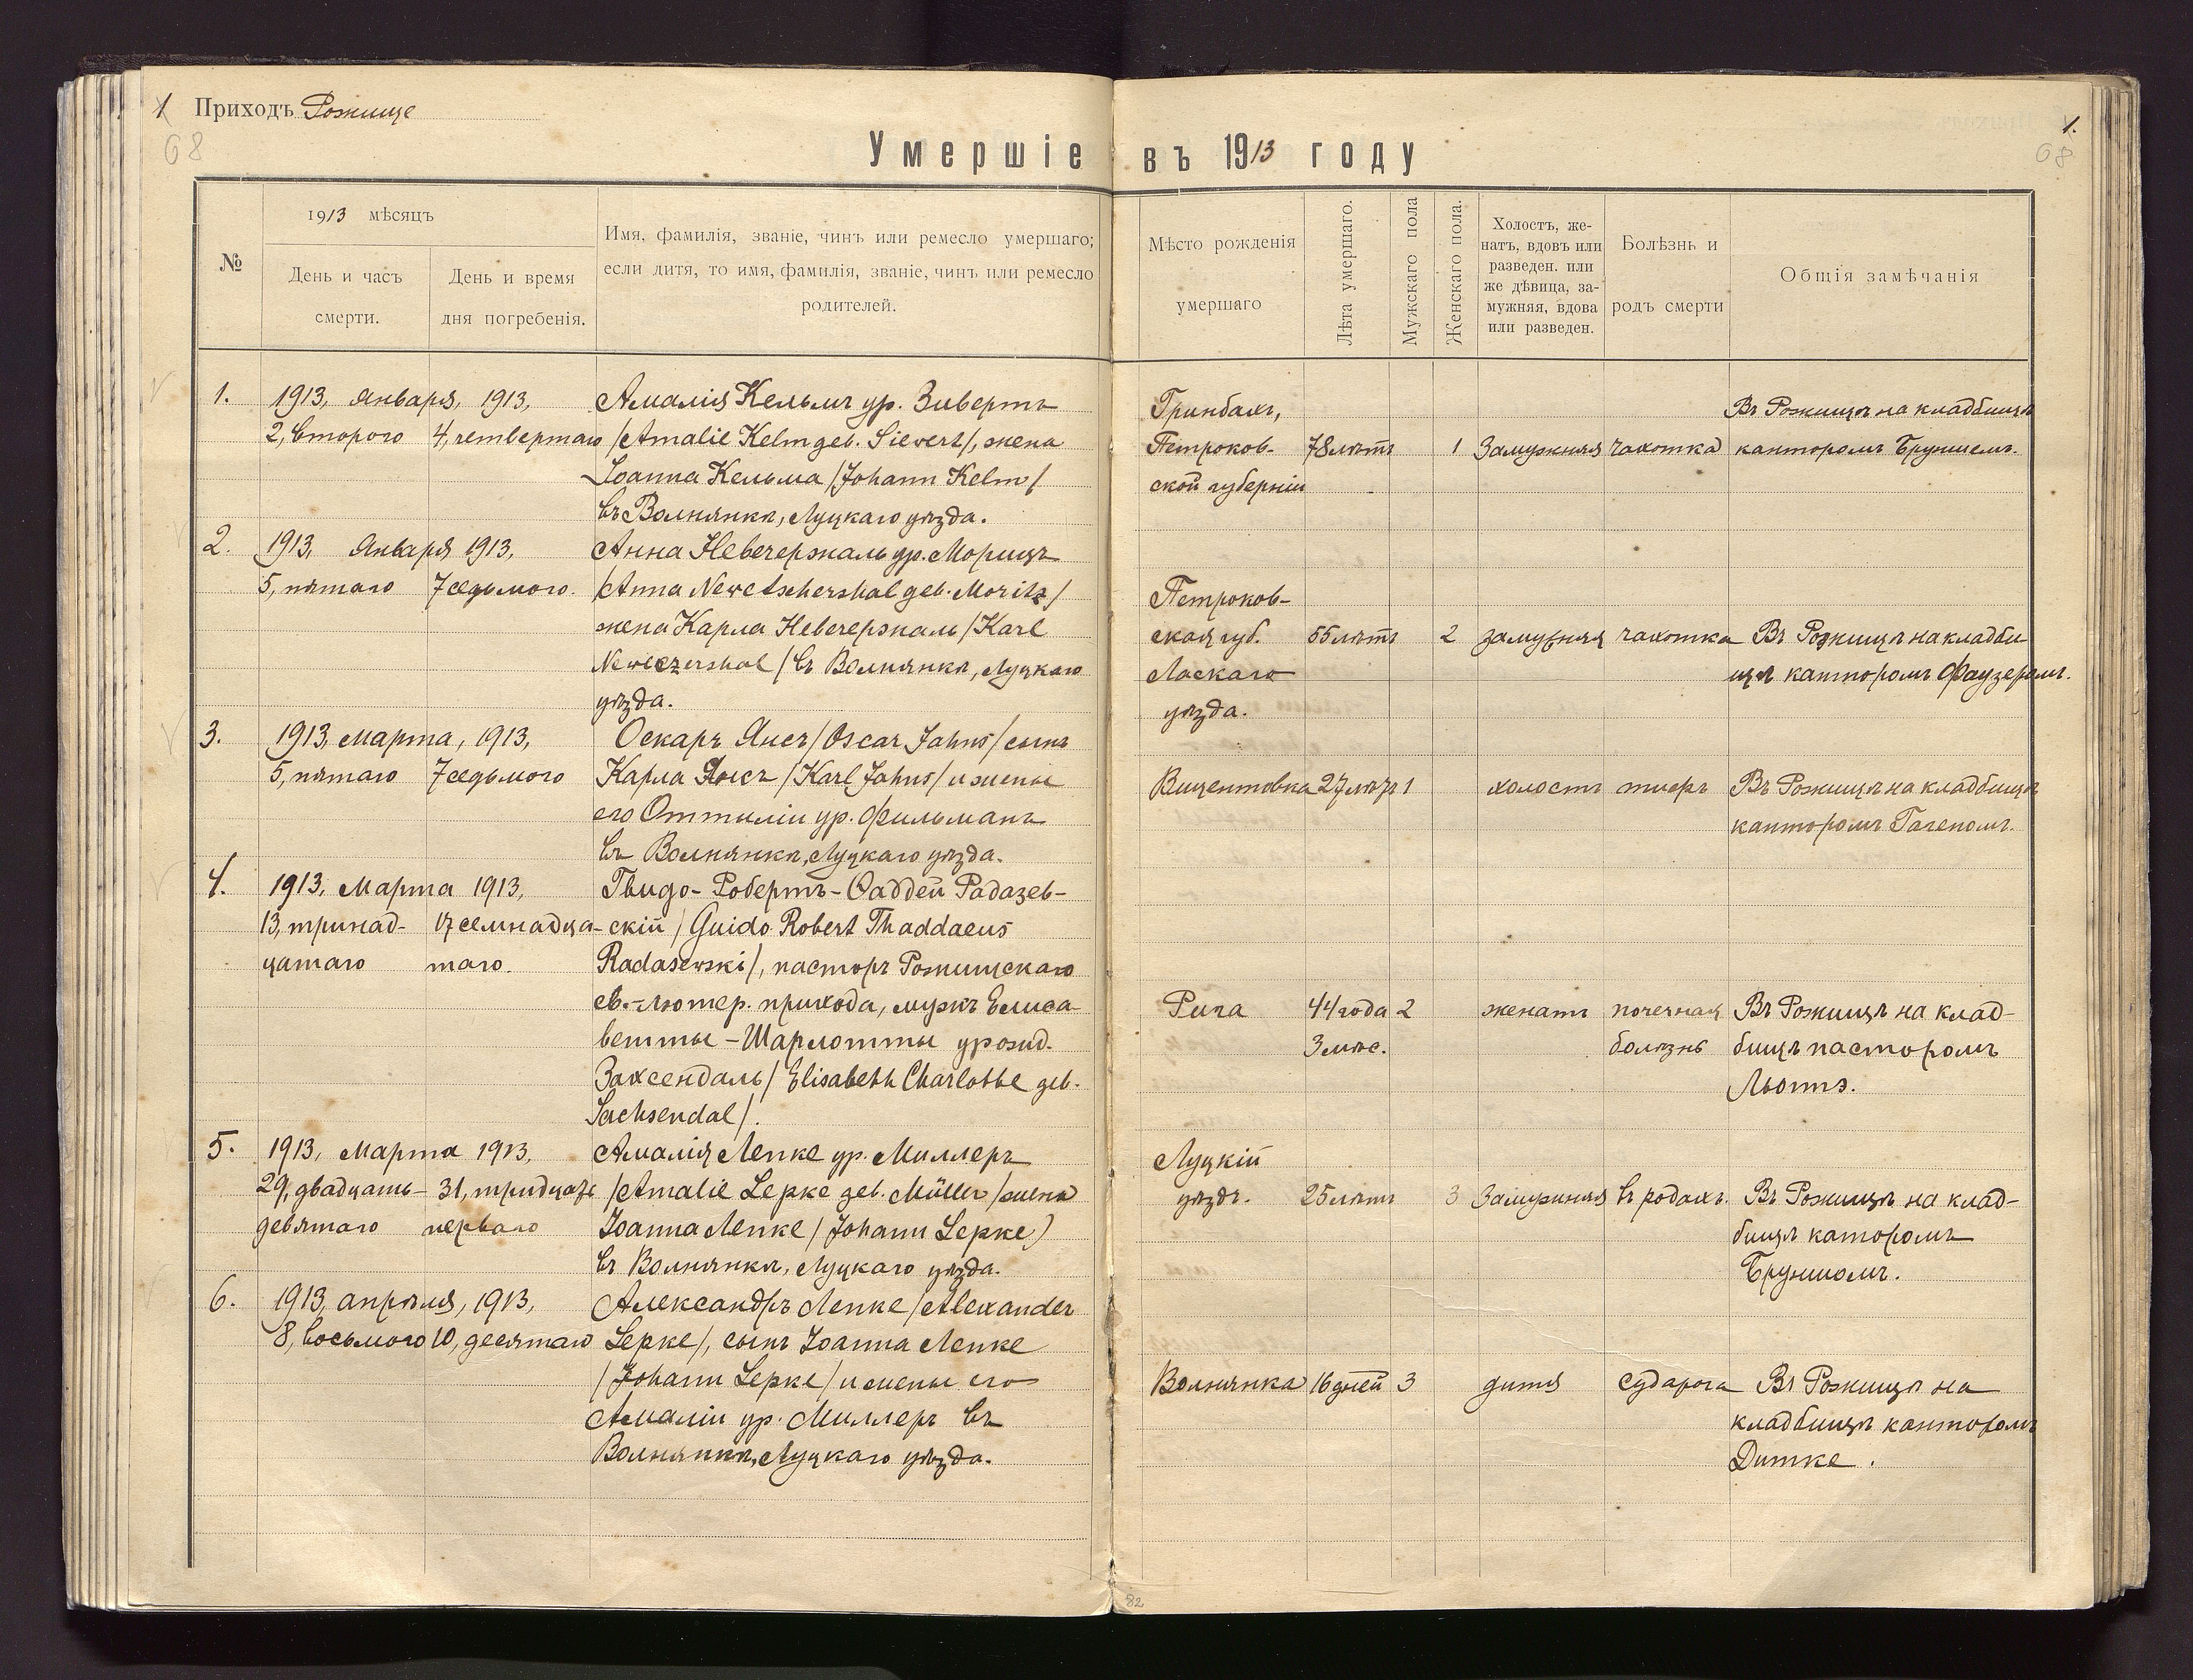 1 Приходъ Рожище
68
1.
68
Умершіе въ 1913 году
№
1913 мѣсяцъ
День и часъ
смерти.
День и время
дня погребенія.
Имя, фамилія, званіе, чинъ или ремесло умершаго;
если дитя, то имя, фамилія, званіе, чинъ или ремесло
родителей.
Мѣсто рожденія
умершаго
Лѣта умершаго.
Мужскаго пола
Женскаго пола.
Холостъ, же-
натъ, вдовъ или
разведен. или
же дѣвица, за-
мужняя, вдова
или разведен.
Болѣзнь и
родъ смерти
Общія замѣчанія
1.
1913, Января, 1913,
2, второго 4, четвертаго
Амалія Кельмъ ур. Зивертъ
/Amalie Kelm geb. Siewert/, жена
Іоанна Кельма /Johann Kelm/
въ Волнянкѣ, Луцкаго уѣзда.
Гринбахъ,
Петроков-
ской губерніи
78 лѣтъ
1
Замужняя
чахотка
Въ Рожищѣ на кладбищѣ
канторомъ Бруншемъ.
2.
1913, Января 1913,
5, пятаго 7 седьмого.
Анна Невечержаль ур. Морицъ
/Anna Newetschershal geb. Moritz/
жена Карла Невечержаль /Karl
Neweczershal/ въ Волнянкѣ, Луцкаго
уѣзда.
Петроков-
ская губ.
Ласкаго
уѣзда.
55 лѣтъ
2
замужняя
чахотка
Въ Рожищѣ на кладби-
щѣ канторомъ Фаузеромъ.
3.
1913, Марта, 1913,
5, пятаго 7 седьмого
Оскаръ Янсъ /Oscar Jahns/ сынъ
Карла Янсъ /Karl Jahns/ и жены
его Оттиліи ур. Фильманъ
въ Волнянкѣ, Луцкаго уѣзда.
Вицентовка
27 лѣтъ
1
холостъ
тифъ
Въ Рожищѣ на кладбищѣ
канторомъ Гагеномъ.
4.
1913, Марта 1913,
13, тринад- 17 семнадца-
цатаго таго.
Гвидо-Робертъ-Ѳаддей Радазев-
скій /Guido Robert Thaddaeus
Radasewski/, пасторъ Рожищскаго
ев.-лютер. прихода, мужъ Елиса-
ветты-Шарлотты урожд.
Заксендаль /Elisabeth Charlotte geb.
Sachsendal/.
Рига
44 года
3 мѣс.
2
женатъ
почечная
болѣзнь
Въ Рожищѣ на клад-
бищѣ пасторомъ
Льотэ.
5.
1913, Марта 1913,
29, двадцать- 31, тридцать
девятаго перваго
Амалія Лепке ур. Миллеръ
/Amalie Lepke geb. Müller/ жена
Іоанна Лепке /Johann Lepke)
въ Волнянкѣ, Луцкаго уѣзда.
Луцкій
уѣздъ.
25 лѣтъ
3
Замужняя
въ родахъ.
Въ Рожищѣ на клад-
бищѣ каторомъ
Бруншомъ.
6.
1913, апрѣля, 1913,
8, восьмого 10, десятаго
Александръ Лепке /Alexander
Lepke/, сынъ Іоанна Лепке
/Johann Lepke/ и жены его
Амаліи ур. Миллеръ въ
Волнянкѣ, Луцкаго уѣзда.
Волнянка
16 дней
3
дитя
сударога
Въ Рожищѣ на
кладбищѣ канторомъ
Дитке.
82